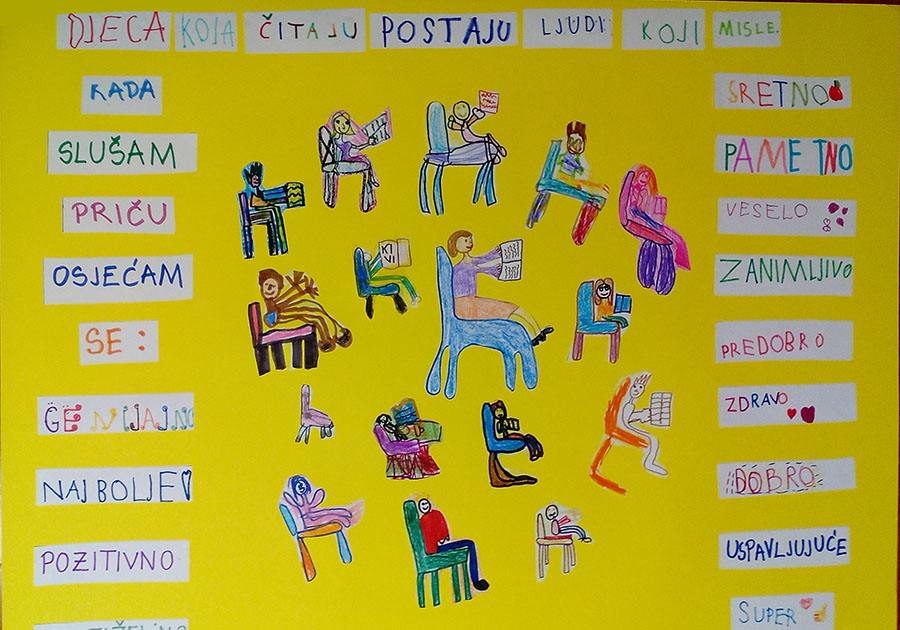 DJECA KOJA ČITAJU POSTAJU LJUDI KOJI MISLE.
KADA
SLUŠAM
PRIČU
OSJEĆAM
SE:
GENIJALNO
NAJBOLJE
POZITIVNO
SRETNO
PAMETNO
VESELO
ZANIMLJIVO
PREDOBRO
ZDRAVO
DOBRO
USPAVLJUJUĆE
SUPER